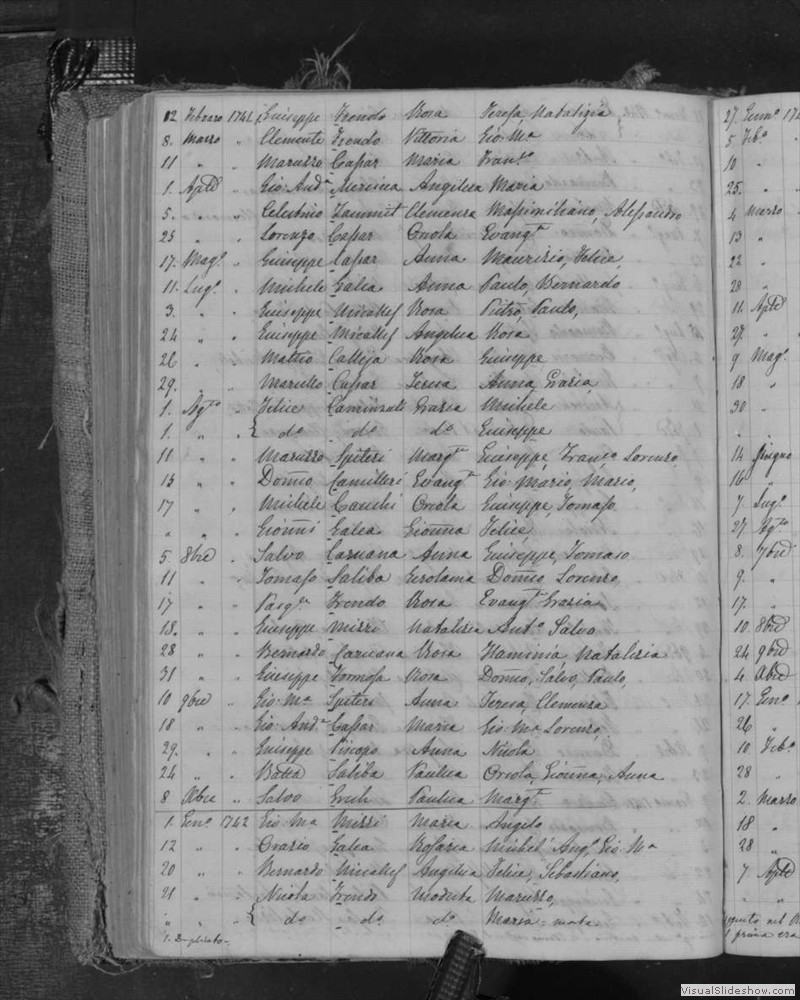 12 Febraro 1741 Giuseppe Frendo Rosa Teresa, Natalizia
8. Marzo " Clemente Frendo Vittoria Gio: Mª
11 " " Maruzzo Caspar Maria Franco
1. Aple " Gio: Andª Mercieca Angelica Maria
5. " " Celestino Zammit Clemenza Massimiliano, Alessandro
25 " " Lorenzo Caspar Orsola Evangta
17. Magº " Giuseppe Caspar Anna Maurizio, Felice,
11. Lugº " Michele Galea Anna Paulo, Bernardo
3. " " Giuseppe Micallef Rosa Pietro, Paulo,
24 " " Giuseppe Micallef Angelica Rosa
26 " " Matteo Calleja Rosa Giuseppe
29. " " Marullo Caspar Teresa Anna, Grazia,
1. Agto " Felice Grazia Michele
1. " " { do do do Giuseppe
11 " " Maruzzo Spiteri Margta Giuseppe, Franco Lorenzo,
15 " " Domco Camilleri Evangta Gio: Mario, Mario,
17 " " Michele Cauchi Orsola Giuseppe, Tomaso
" " " Gionni Galea Gionna Felice,
5 8bre " Salvo Caruana Anna Giuseppe, Tomaso
11 " " Tomaso Saliba Gerolama Domco Lorenzo,
17 " " Pasqle Frendo Rosa Evangta Grazia
18. " " Giuseppe Mizzi Natalizia Anto Salvo
28 " " Bernardo Caruana Rosa Flaminia, Natalizia
31 " " Giuseppe Formosa Rosa Domco, Salvo, Paulo,
10 9bre " Gio: Mª Spiteri Anna Teresa, Clemenza
18 " " Gio: Andª Caspar Maria Gio: Mª Lorenzo,
29. " " Giuseppe Piscopo Anna Nicola
24 " " Batta Saliba Paulica Orsola, Gionna, Anna
8 Xbre " Salvo Grech Paulica Margta
1. Genº 1742 Gio: Mª Mizzi Maria Angelo
12 " " Orazio Galea Rosaria Michel' Angº, Gio: Mª
20 " " Bernardo Micallef Angelica Felice, Sebastiano,
21 " " Nicola Frendo Modesta Maruzzo,
" " " { do do do Maria
27. Gennº 174
5 Febº "
10 "
25. "
4 Marzo "
13 "
22 "
28 "
11. Aple
27. "
9 Magº
18 "
30 "
14 Giugno
16 "
7 Lugº
27. Agto
8. 7bre
9. "
17. "
10 8bre
24 9bre
4 Xbre
17. Genº
26 "
10 Febº
28 "
2. Marzo
18 "
28 "
7 Aple
VisualSlideshow.com